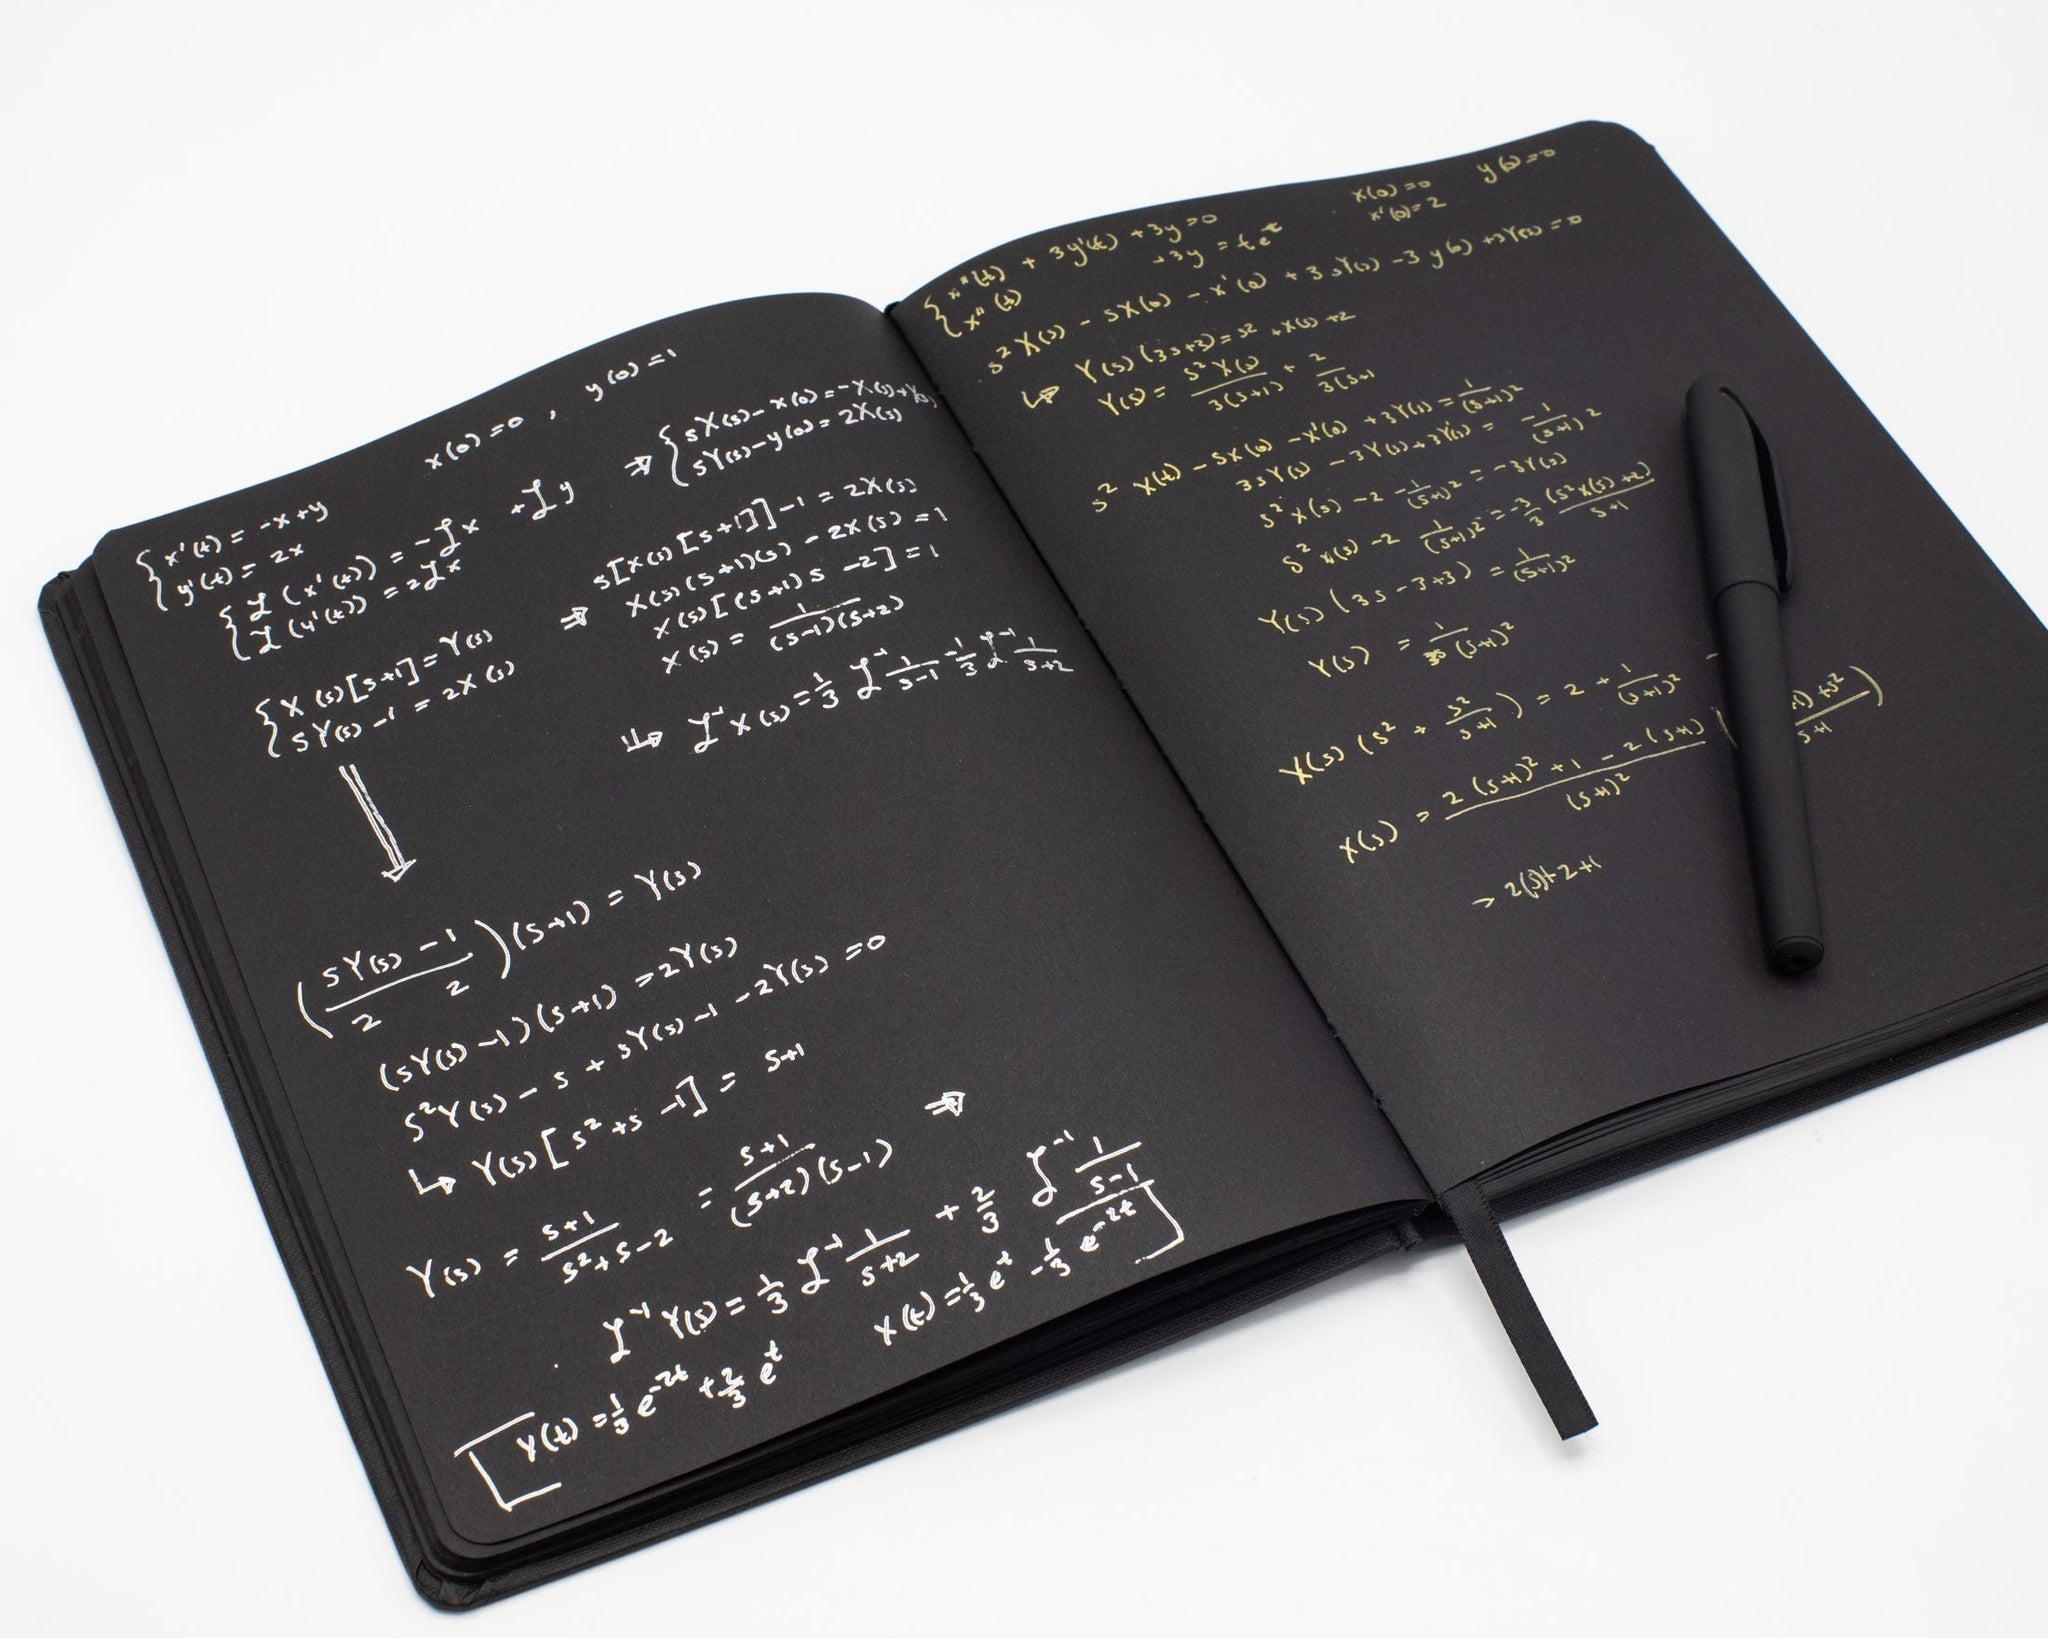 x(0)=0 , y(0)=1
{ x'(t) = -x+y
y'(t) = 2x
{ ℒ(x'(t)) = -ℒx + ℒy
ℒ(y'(t)) = 2ℒx
⇒ { sX(s)-x(0)=-X(s)+Y(s)
sY(s)-y(0)=2X(s)
{ X(s)[s+1]=Y(s)
sY(s)-1 = 2X(s)
⇒ s[X(s)[s+1]]-1=2X(s)
X(s)(s+1)(s)-2X(s)=1
X(s)[(s+1)s-2]=1
X(s) = 1/(s-1)(s+2)
↳ ℒ⁻¹X(s)=1/3 ℒ⁻¹ 1/s-1 -1/3 ℒ⁻¹ 1/s+2
((sY(s)-1)/2 2)(s+1) = Y(s)
(sY(s)-1)(s+1)=2Y(s)
s²Y(s)-s+sY(s)-1-2Y(s)=0
↳ Y(s)[s²+s-1] = s+1
Y(s) = s+1/s²+s-2 = s+1/(s+2)(s-1) ⇒
ℒ⁻¹Y(s)=1/3 ℒ⁻¹ 1/s+2 + 2/3 ℒ⁻¹ 1/s-1
y(t)=1/3 e^-2t + 2/3 e^t
x(t)=1/3 e^t - 1/3 e^-2t
x(0)=0 y(0)=0
x'(0)=2
{ x''(t) + 3y'(t) + 3y=0
x''(t) +3y = te^-t
s²X(s) - sX(0) - x'(0) + 3sY(s) -3y(0)+3Y(s)=0
↳ Y(s)(3s+3)=s²+X(s)+2
Y(s) = s²X(s)/3(s+1) + 2/3(s+1
s² X(t) - sX(0) -x'(0) +3Y(s) = 1/(s+1)²
3sY(s) -3Y(s)+3Y(s) = -1/(s+1)²
s²X(s) -2 -1/(s+1)² = -3Y(s)
s²X(s) -2 1/(s+1)² = -3/3 (s²X(s)+2)/s+1
Y(s)(3s-3+3) = 1/(s+1)²
Y(s) = 1/(s+1)²
X(s)(s² + s²/s+1) = 2 + 1/(s+1)² -
X(s) = 2(s+1)²+1-2(s+1)/(s+1)² ( 1)+s²/s+1 )
→ 2(s)+2+1